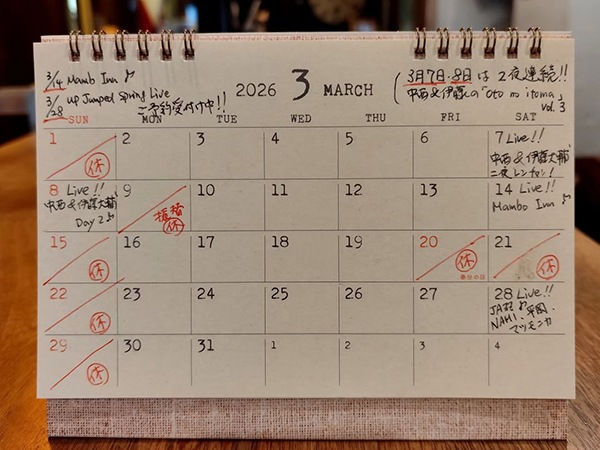 3/14 Mambo Inn ♪
3/28 Up Jumped Spring Live
ご予約受付け中!!
2026 3 MARCH
(3月7日・8日は2夜連続!!
中西&伊藤の「Oto no itoma」
vol.3
SUN MON TUE WED THU FRI SAT
1 休
2
3
4
5
6
7 Live!!
中西&伊藤大輔
二夜レンチャン!
8 Live!!
中西&伊藤大輔
Day2♪
9 振替
休
10
11
12
13
14 Live!!
Mambo Inn ♪
15 休
16
17
18
19
20 休
春分の日
21 休
22 休
23
24
25
26
27
28 Live!!
NAHI、平岡、
マツモニカ
29 休
30
31
1
2
3
4